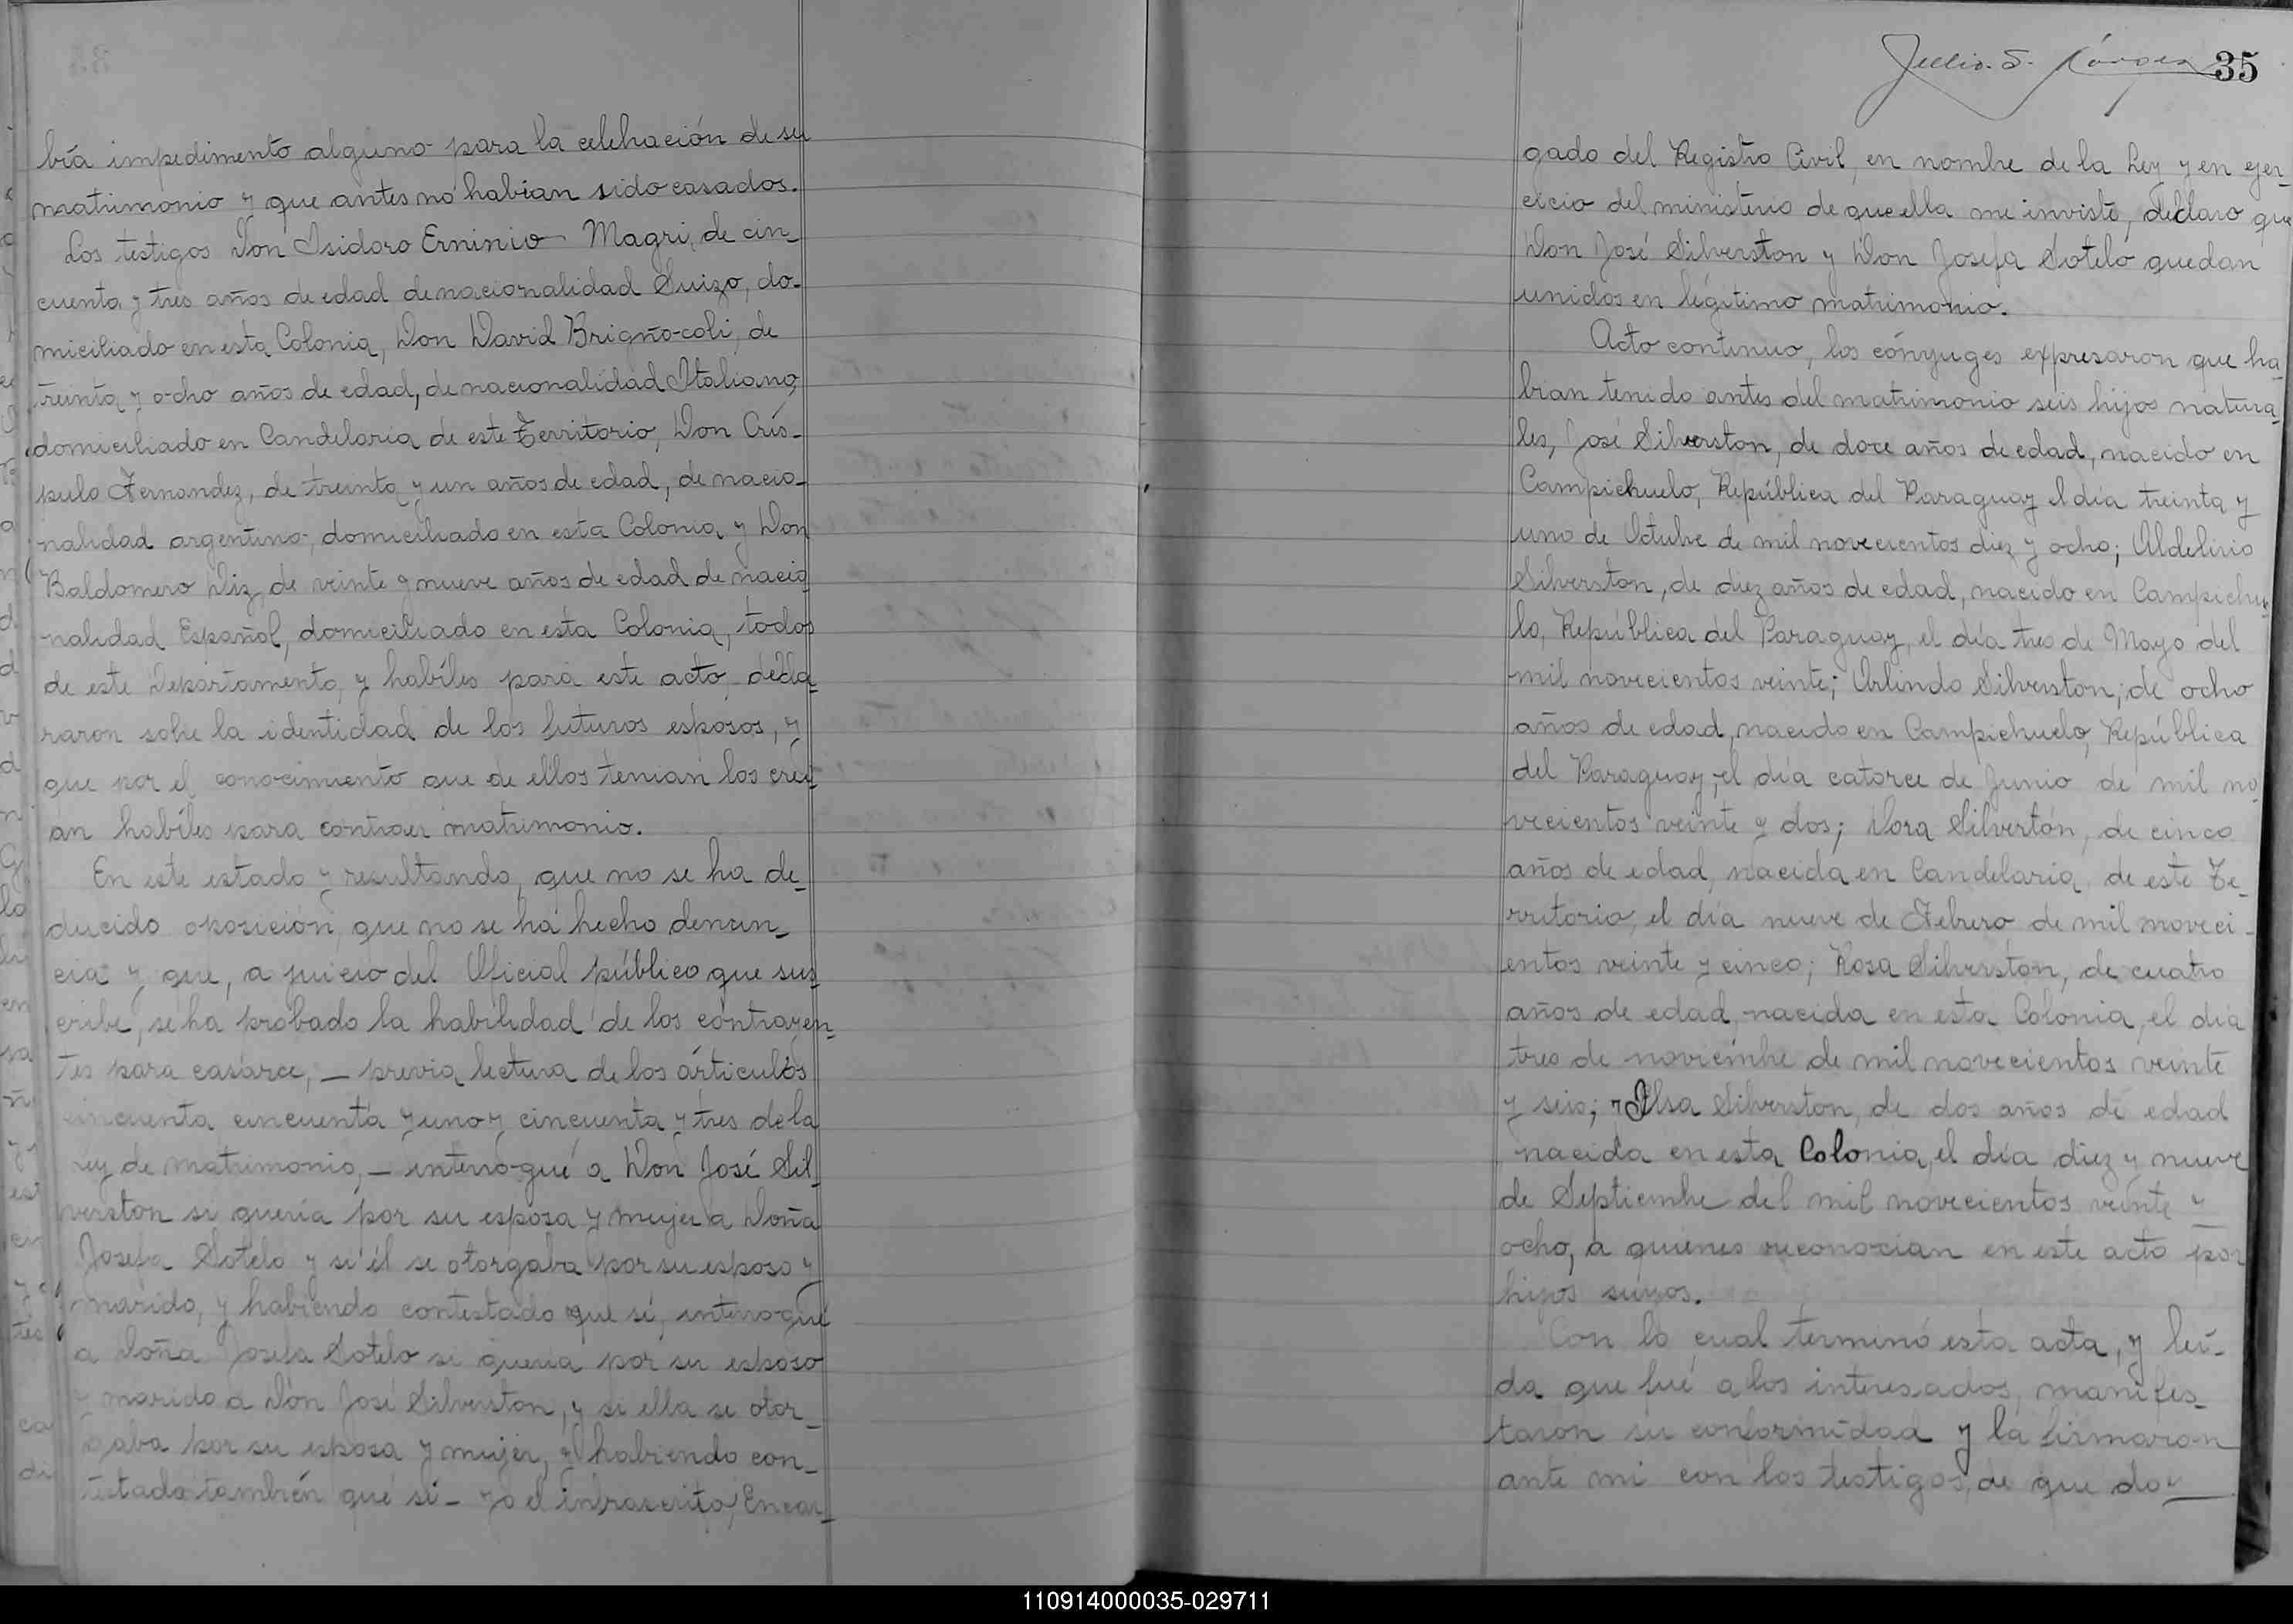 bría impedimento alguno para la celebración de su
matrimonio y que antes no habian sido casados.
Los testigos Don Isidoro Erninio Magri, de cin_
cuenta y tres años de edad de nacionalidad Suizo, do-
miciliado en esta Colonia, Don David Brigño-coli, de
treinta y ocho años de edad, de nacionalidad Italiano,
domiciliado en Candelaria de este Territorio, Don Crís-
pulo Fernandez, de treinta y un años de edad, de nacio_
nalidad argentino, domiciliado en esta Colonia y Don
Baldomero Diz, de veinte y nueve años de edad de nacio_
nalidad Español, domiciliado en esta Colonia, todos
de este Departamento, y habíles para este acto, decla_
raron sobre la identidad de los futuros esposos, y
que por el conocimiento que de ellos tenian los creí_
an habíles para contraer matrimonio.
En este estado y resultando, que no se ha de_
ducido oposición, que no se ha hecho denun_
cia y que, a juicio del Oficial público que sus_
cribe, se ha probado la habilidad de los contrayen_
tes para casarce, _ previa lectura de los árticulos
cincuenta cincuenta y uno y cincuenta y tres de la
Ley de matrimonio, _ interrogué a Don José Sil_
verston si queria por su esposa y mujer a Doña
Josefa Sotelo y si él se otorgaba por su esposo y
marido, y habiendo contestado que sí, interrogué
a Doña Josefa Sotelo si queria por su esposo
y marido a Don José Silverston, y si ella se otor_
gaba por su esposa y mujer, y habiendo con_
testado también qué si _ yo el infrascrito, Encar_
Julio. S.
35
gado del Registro Civil, en nombre de la Ley y en ejer_
cicio del ministerio de que ella me inviste, declaro que
Don José Silverston y Don Josefa Sotelo quedan
unidos en légitimo matrimonio.
Acto continuo, los cónyuges expresaron que ha_
bian tenido antes del matrimonio seis hijos natura_
les, José Silverston, de doce años de edad, nacido en
Campichuelo, República del Paraguay el día treinta y
uno de Octubre de mil novecientos diez y ocho; Aldelirio
Silverston, de diez años de edad, nacido en Campichue_
lo, República del Paraguay, el día tres de Mayo del
mil novecientos veinte; Arlindo Silverston, de ocho
años de edad, nacido en Campichuelo, República
del Paraguay, el día catorce de Junio de mil no_
vecientos veinte y dos; Dora Silvertón, de cinco
años de edad, nacida en Candelaria, de este Te_
rritorio, el día nueve de Febrero de mil noveci_
entos veinte y cinco; Rosa Silverston, de cuatro
años de edad, nacida en esta Colonia, el día
tres de noviembre de mil novecientos veinte
y seis; y Elsa Silverston, de dos años de edad
nacida en esta Colonia, el día diez y nueve
de Septiembre del mil novecientos veinte y
ocho, a quienes reconocian en este acto por
hijos suyos.
Con lo cual terminó esta acta, y leí-
da que fué a los interesados, manifes_
taron su conformidad y la firmaron
ante mi con los testigos, de que doy
110914000035-029711